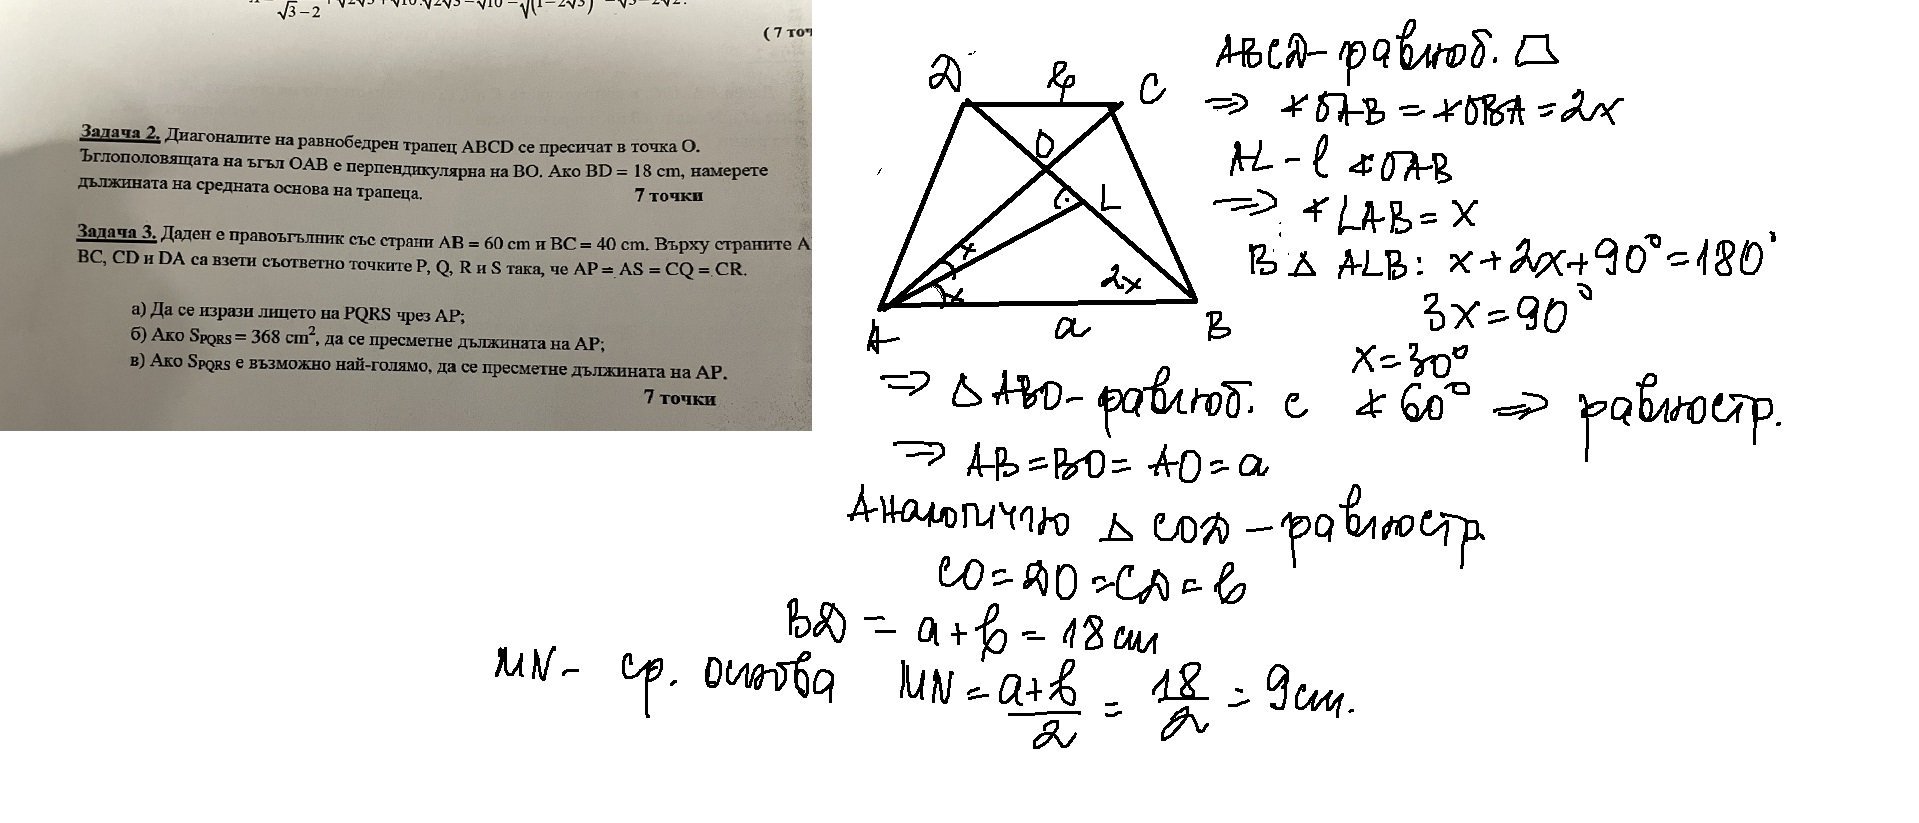 √3−2
( 7 точ
Задача 2. Диагоналите на равнобедрен трапец ABCD се пресичат в точка O.
Ъглополовящата на ъгъл OAB е перпендикулярна на BO. Ако BD = 18 cm, намерете
дължината на средната основа на трапеца.
7 точки
Задача 3. Даден е правоъгълник със страни AB = 60 cm и BC = 40 cm. Върху страните A
BC, CD и DA са взети съответно точките P, Q, R и S така, че AP = AS = CQ = CR.
а) Да се изрази лицето на PQRS чрез AP;
б) Ако SPQRS = 368 cm², да се пресметне дължината на AP;
в) Ако SPQRS е възможно най-голямо, да се пресметне дължината на AP.
7 точки
D
b
C
O
L
x
x
2x
A
a
B
ABCD – равноб.
⇒ ∢OAB = ∢OBA = 2x
AL – l ∢OAB
⇒ ∢LAB = x
В △ ALB: x + 2x + 90° = 180°
3x = 90°
x = 30°
⇒ △ ABO – равноб. с ∢ 60° ⇒ равностр.
⇒ AB = BO = AO = a
Аналогично △ COD – равностр.
CO = DO = CD = b
BD = a + b = 18 cm
MN – ср. основа MN = a+b/2 = 18/2 = 9 cm.